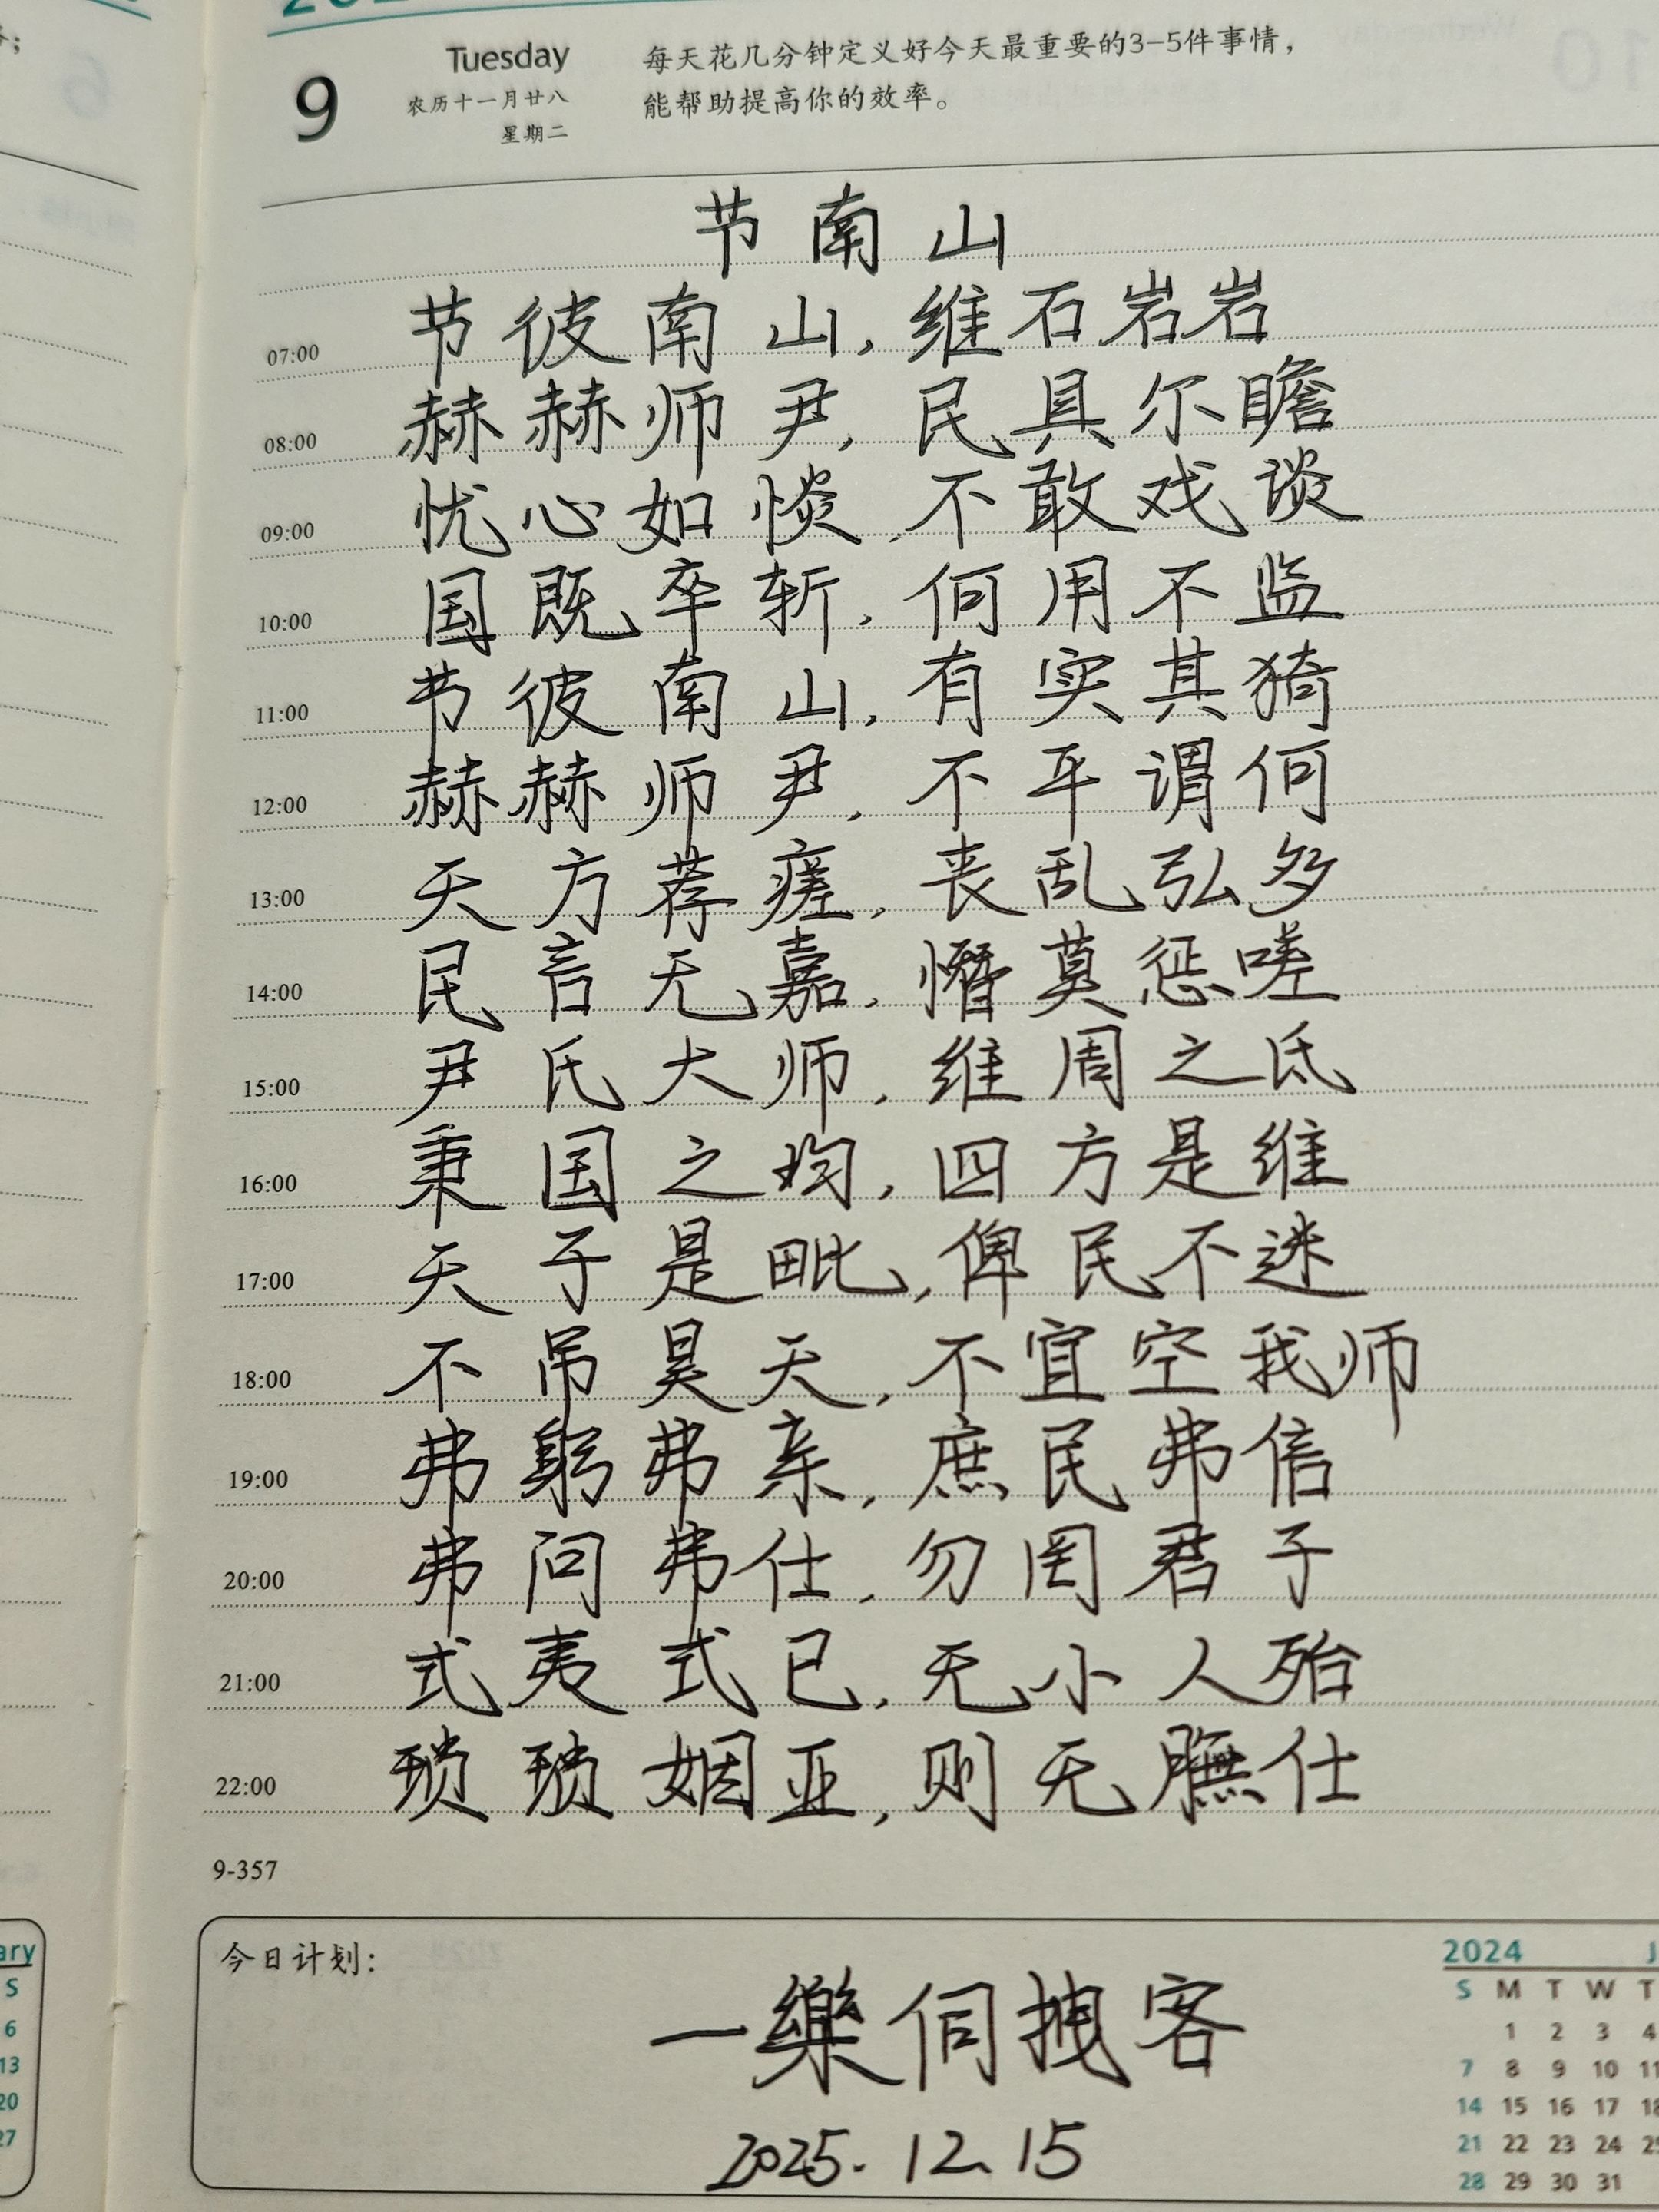 Tuesday
9
农历十一月廿八
星期二
每天花几分钟定义好今天最重要的3-5件事情，
能帮助提高你的效率。
节南山
07:00 节彼南山,维石岩岩
08:00 赫赫师尹,民具尔瞻
09:00 忧心如惔,不敢戏谈
10:00 国既卒斩,何用不监
11:00 节彼南山,有实其猗
12:00 赫赫师尹,不平谓何
13:00 天方荐瘥,丧乱弘多
14:00 民言无嘉,憯莫惩嗟
15:00 尹氏大师,维周之氐
16:00 秉国之均,四方是维
17:00 天子是毗,俾民不迷
18:00 不吊昊天,不宜空我师
19:00 弗躬弗亲,庶民弗信
20:00 弗问弗仕,勿罔君子
21:00 式夷式已,无小人殆
22:00 琐琐姻亚,则无膴仕
9-357
今日计划：
一樂伺拽客
2025.12.15
2024 J
S M T W T
1 2 3 4
7 8 9 10 11
14 15 16 17 18
21 22 23 24 25
28 29 30 31
ary
S
6
13
20
27